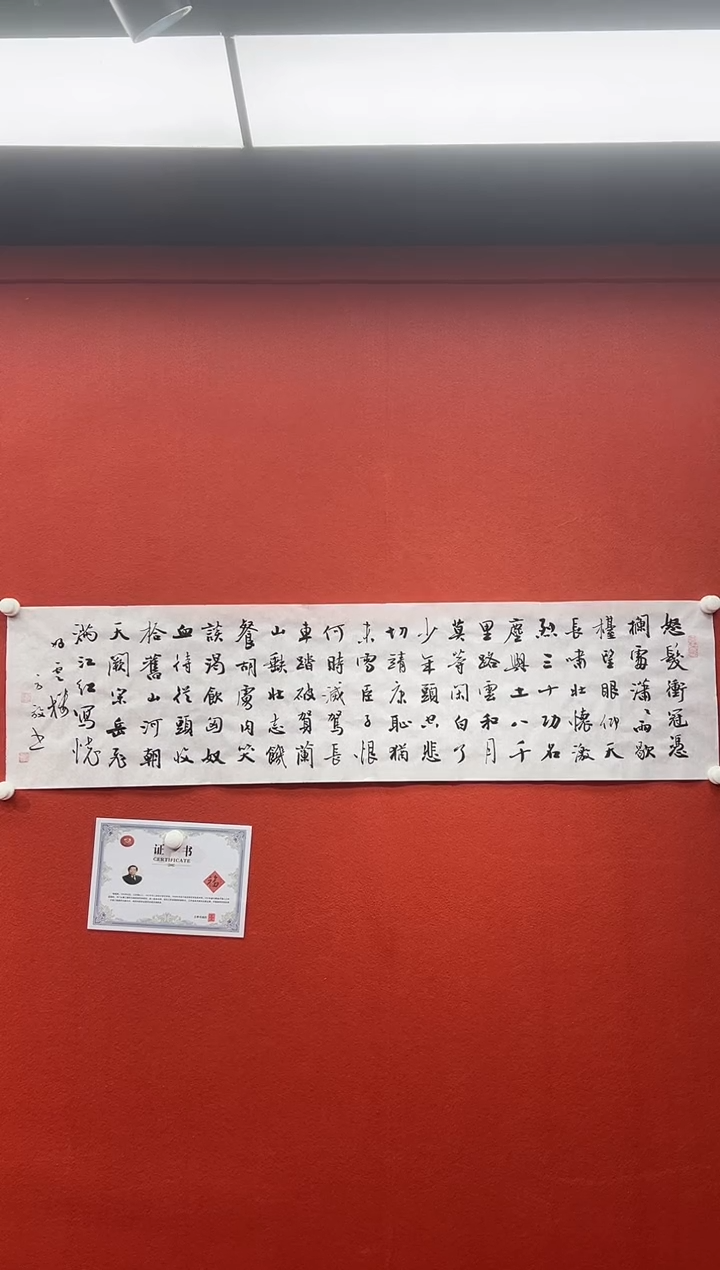 怒髮衝冠憑
欄處瀟瀟雨歇
擡望眼仰天
長嘯壯懷激
烈三十功名
塵與土八千
里路雲和月
莫等閑白了
少年頭空悲
切靖康恥猶
未雪臣子恨
何時滅駕長
車踏破賀蘭
山缺壯志饑
餐胡虜肉笑
談渴飲匈奴
血待從頭收
拾舊山河朝
天闕宋岳飛
滿江紅寫懷
证书
CERTIFICATE
福